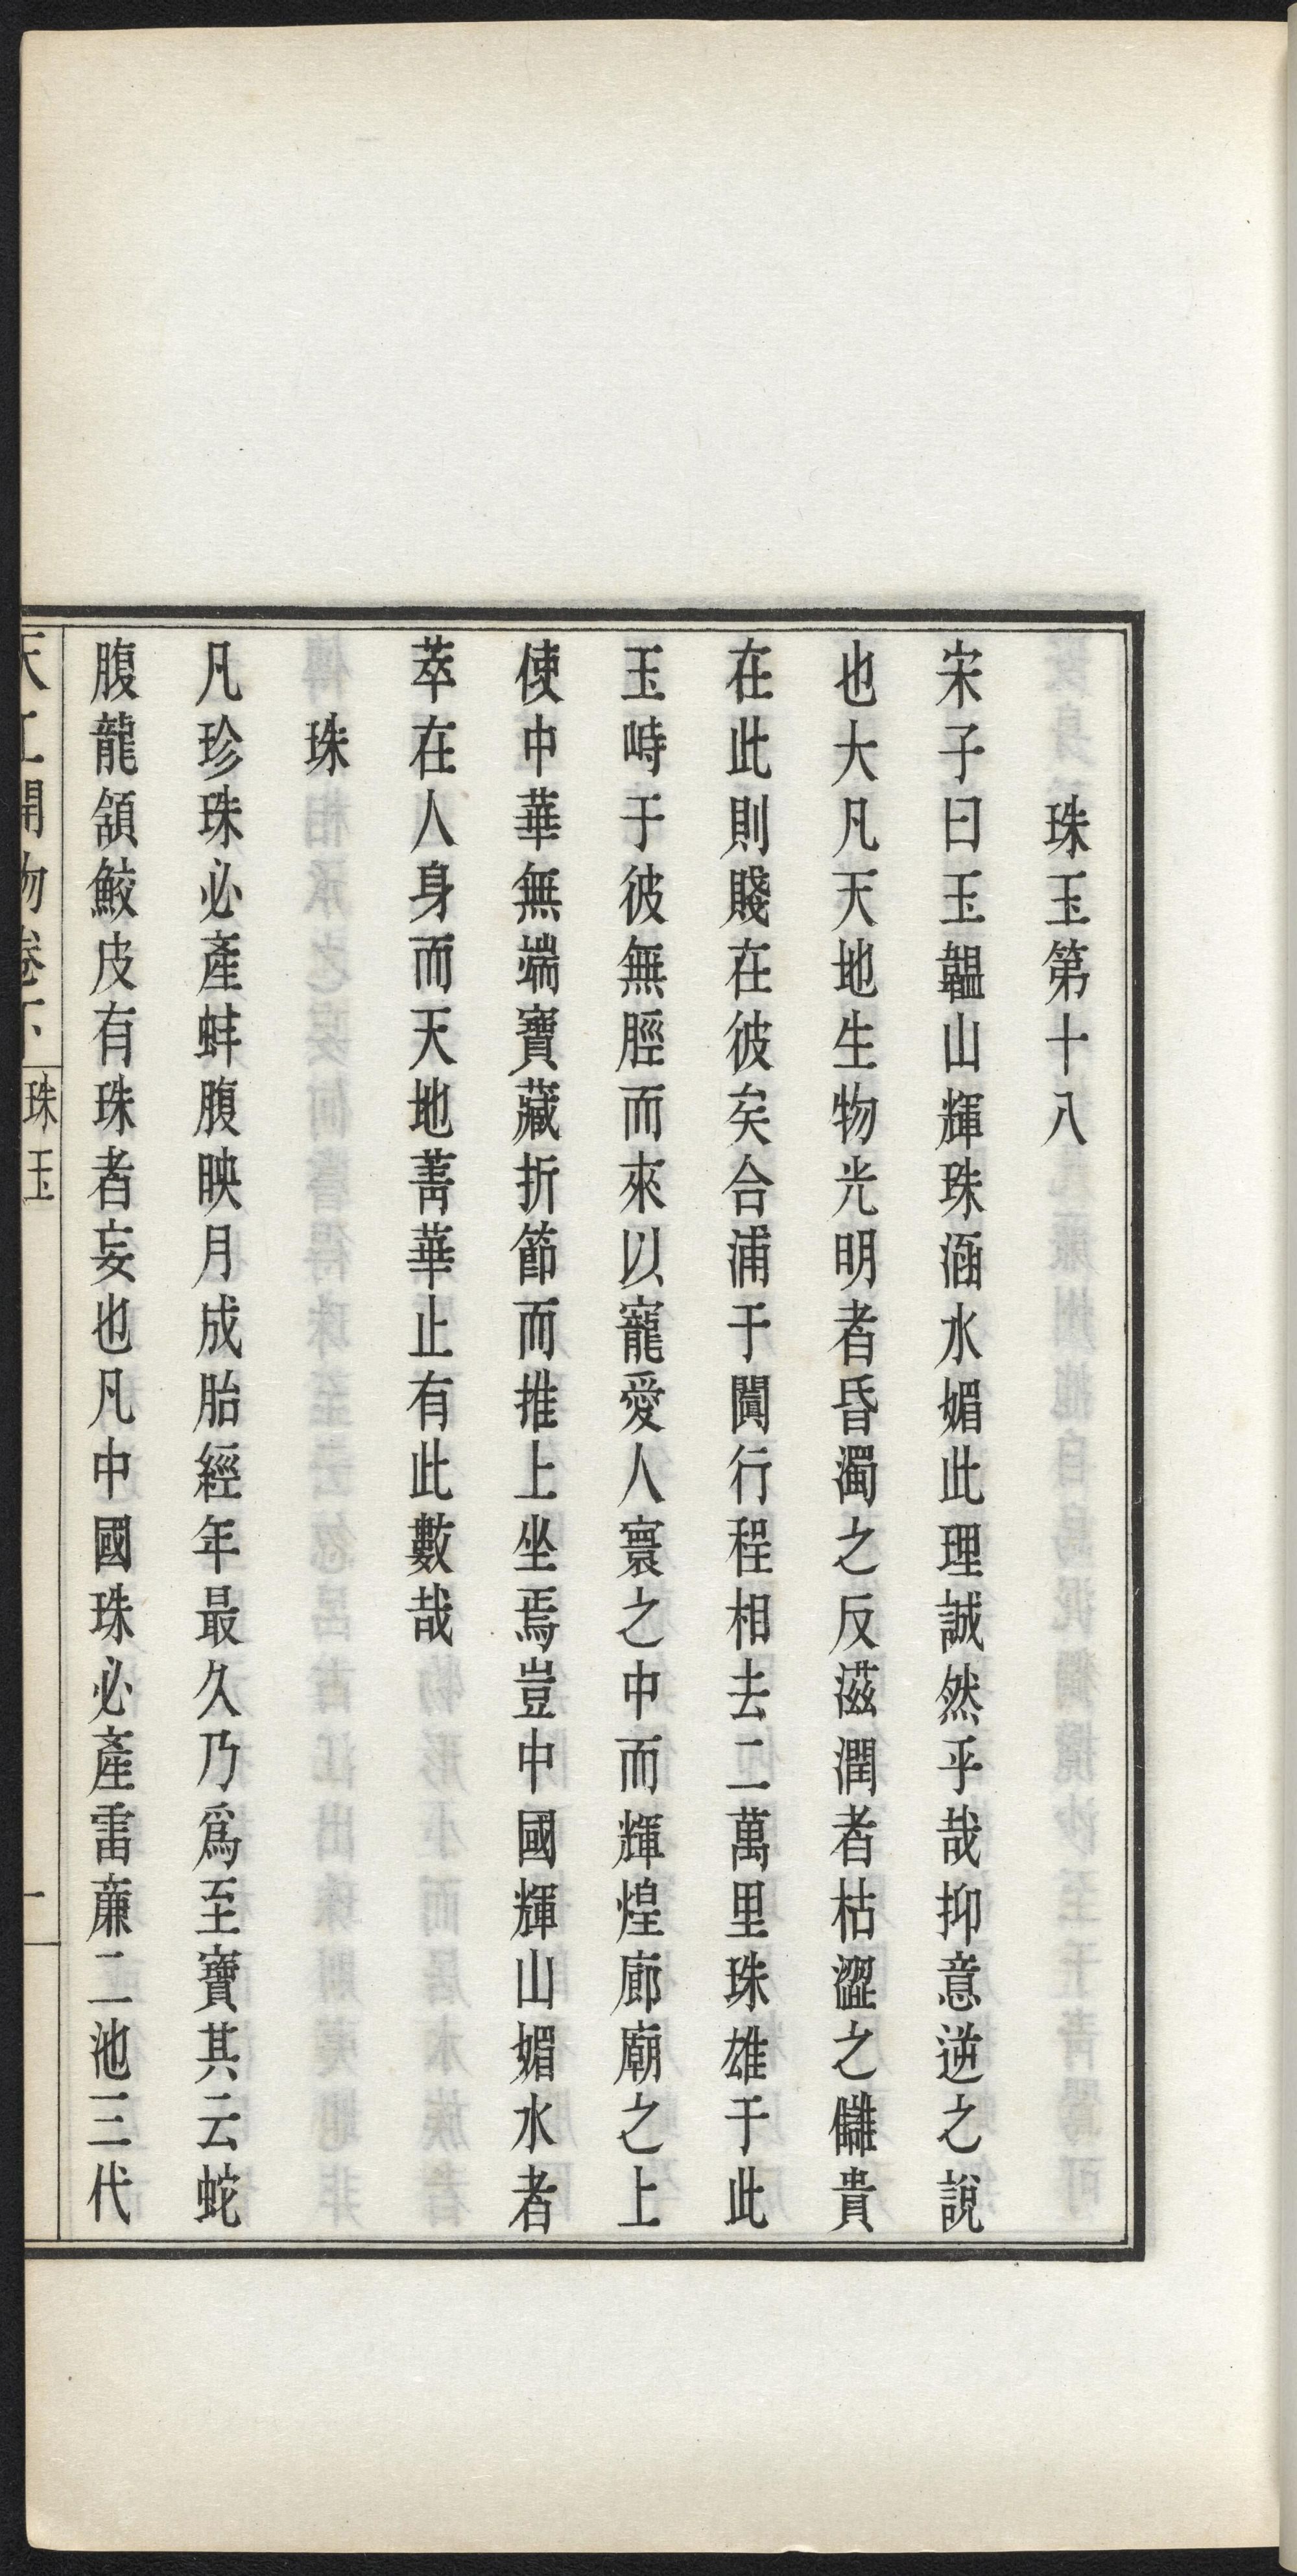 珠玉第十八
宋子曰玉韞山輝珠涵水媚此理誠然乎哉抑意逆之說
也大凡天地生物光明者昏濁之反滋潤者枯澀之讎貴
在此則賤在彼矣合浦于闐行程相去二萬里珠雄于此
玉峙于彼無脛而來以寵愛人寰之中而輝煌廊廟之上
使中華無端寶藏折節而推上坐焉豈中國輝山媚水者
萃在人身而天地菁華止有此數哉
珠
凡珍珠必產蚌腹映月成胎經年最久乃爲至寶其云蛇
腹龍頷鮫皮有珠者妄也凡中國珠必產雷廉二池三代
天工開物卷下 珠玉 一